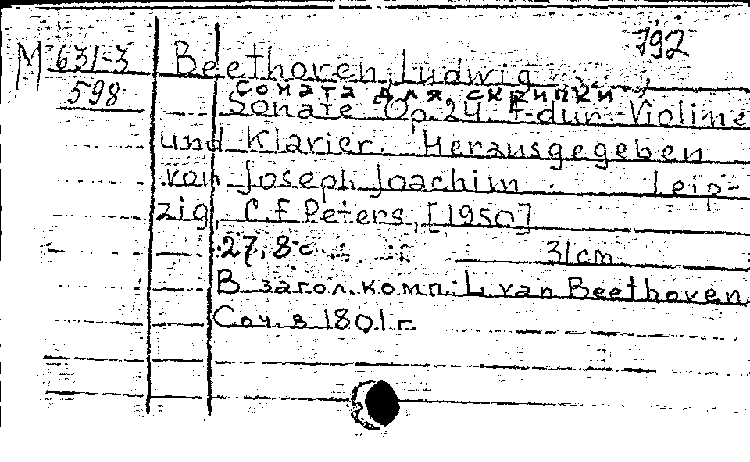 792
М 631-3
598
Beethoven, Ludwig
Соната для скрипки
Sonate Op. 24 F-dur Violine
und Klavier. Herausgegeben
von Joseph Joachim. Leip-
zig, C. F. Peters, [1950]
27, 8 c 31cm
В загол. комп.: L. van Beethoven
Соч. в 1801 г.